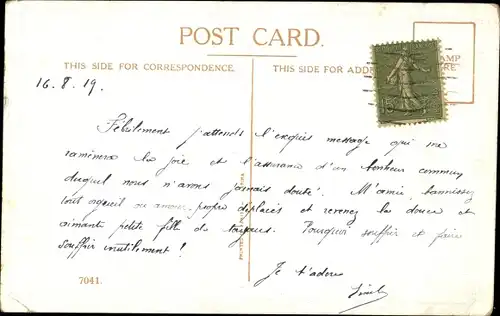 POST CARD.
THIS SIDE FOR CORRESPONDENCE.
THIS SIDE FOR ADDR
AMP
RE
15
16.8.19.
Fébrilement j'attends l'exquis message qui me
ramènera la joie et l'assurance d'un bonheur commun
duquel nous n'avons jamais douté. M'amie, bannissez
tout orgueil ou amour-propre déplacés et revenez la douce et
aimante petite fille de toujours. Pourquoi souffrir et faire
souffrir inutilement!
Je t'adore
PRINTED IN
7041.